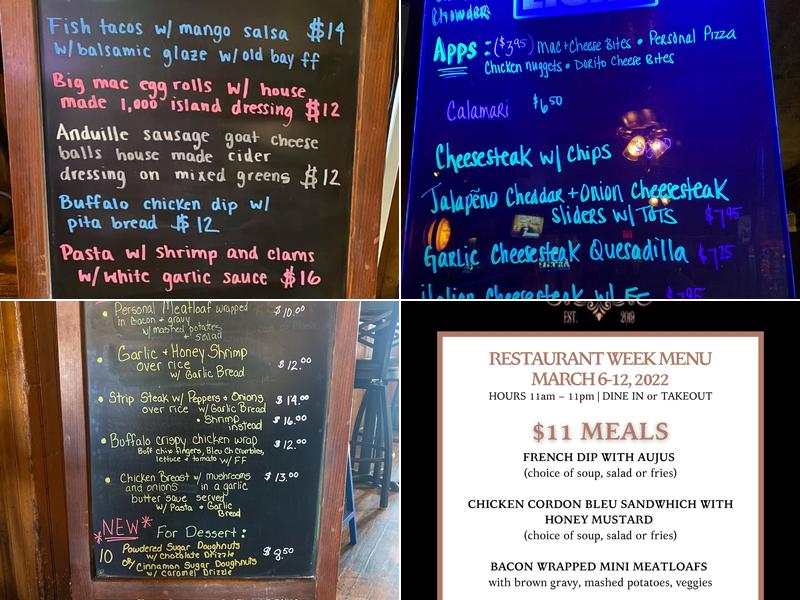 Fish tacos w/ mango salsa $14
w/balsamic glaze w/old bay ff
Big mac egg rolls w/ house
made 1,000 island dressing $12
Anduille sausage goat cheese
balls house made cider
dressing on mixed greens $12
Buffalo chicken dip w/
pita bread $12
Pasta w/ shrimp and clams
w/white garlic sauce $16
Chowders
Apps : ($3.95) mac + Cheese Bites • Personal Pizza
Chicken nuggets • Dorito Cheese Bites
Calamari $6.50
Cheesesteak w/ Chips
Jalapeño Cheddar + Onion Cheesesteak
sliders w/ Tots $7.95
Garlic Cheesesteak Quesadilla $7.25
italian Cheesesteak w/ FF $7.95
• Personal Meatloaf wrapped $10.00
in Bacon + gravy
w/ mashed potatoes
+ salad
• Garlic + Honey Shrimp
over rice $12.00
w/ Garlic Bread
• Strip Steak w/ Peppers + Onions $14.00
over rice w/ Garlic Bread
• Shrimp $16.00
instead
• Buffalo crispy chicken wrap $12.00
Buff chix fingers, Bleu Ch crumbles,
lettuce + tomato w/ FF
• Chicken Breast w/ mushrooms $13.00
and onions in a garlic
butter sauce served
w/ Pasta + Garlic
Bread
*NEW* For Dessert :
10 Powdered Sugar Doughnuts
w/ Chocolate Drizzle $8.50
or/ Cinnamon Sugar Doughnuts
w/ Caramel Drizzle
EST. 2019
RESTAURANT WEEK MENU
MARCH 6-12, 2022
HOURS 11am – 11pm | DINE IN or TAKEOUT
$11 MEALS
FRENCH DIP WITH AUJUS
(choice of soup, salad or fries)
CHICKEN CORDON BLEU SANDWHICH WITH
HONEY MUSTARD
(choice of soup, salad or fries)
BACON WRAPPED MINI MEATLOAFS
with brown gravy, mashed potatoes, veggies